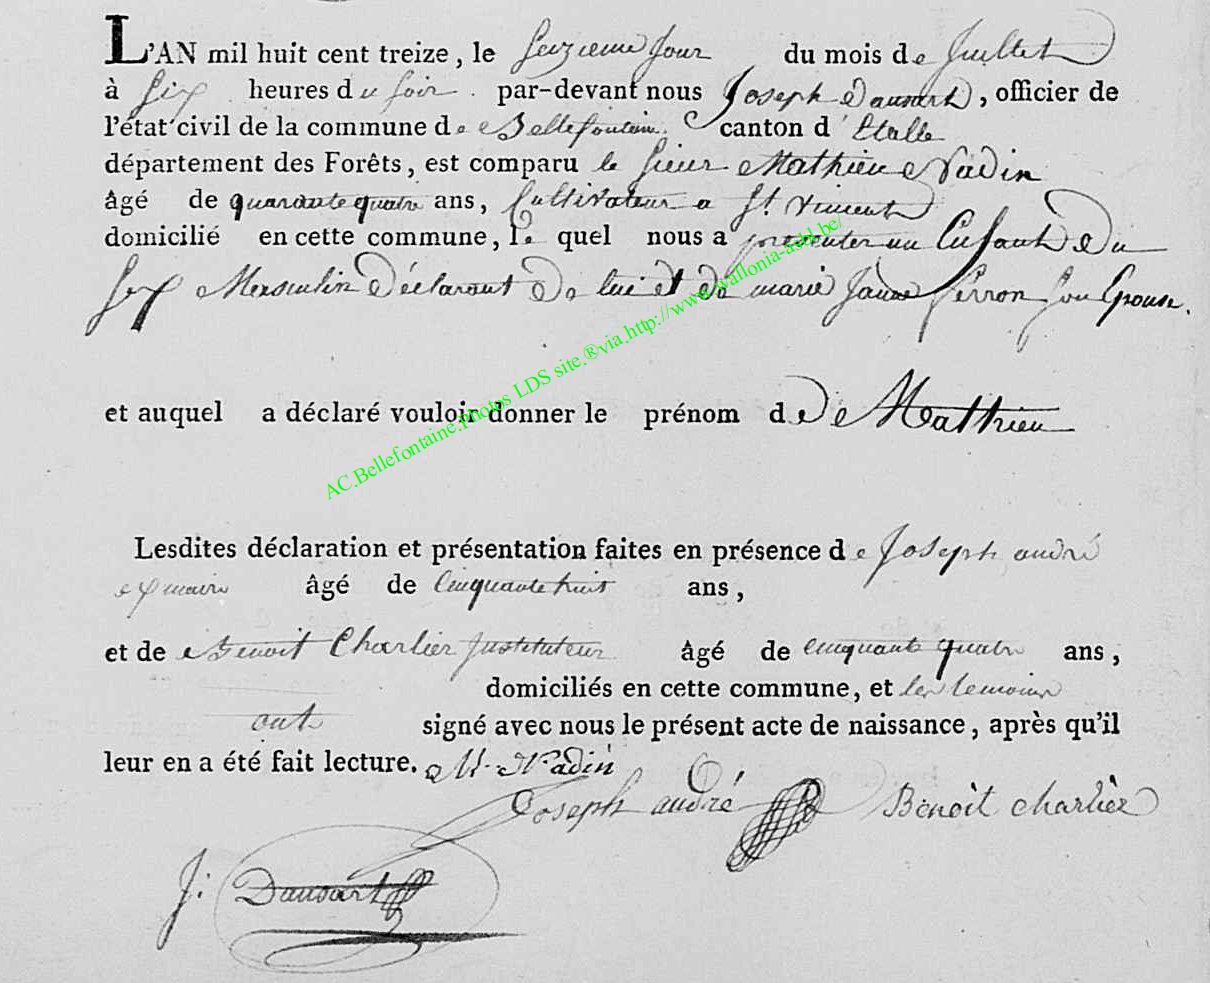 L'AN mil huit cent treize, le Seizieme Jour du mois de Juillet
à Six heures du soir. par-devant nous Joseph Dausart, officier de
l'état civil de la commune de Bellefontaine. canton d'Etalle
département des Forêts, est comparu le sieur Mathieu Nadin
âgé de quarante quatre ans, Cultivateur a St. Vincent
domicilié en cette commune, le quel nous a presenter un Enfant Du
Sex Masculin Déclarant De lui et de marie Jeanne Pierron Son Epouse.
et auquel a déclaré vouloir donner le prénom de De Mathieu
AC.Bellefontaine.Photos LDS site.®via.http://www.wallonia-asbl.be/
Lesdites déclaration et présentation faites en présence de Joseph andré
exmaire âgé de Cinquante huit ans,
et de Benoit Charlier Instituteur âgé de cinquante quatre ans,
domiciliés en cette commune, et les temoins
ont signé avec nous le présent acte de naissance, après qu'il
leur en a été fait lecture. M. Nadin
Joseph andré Benoit charlier
J: Dausart